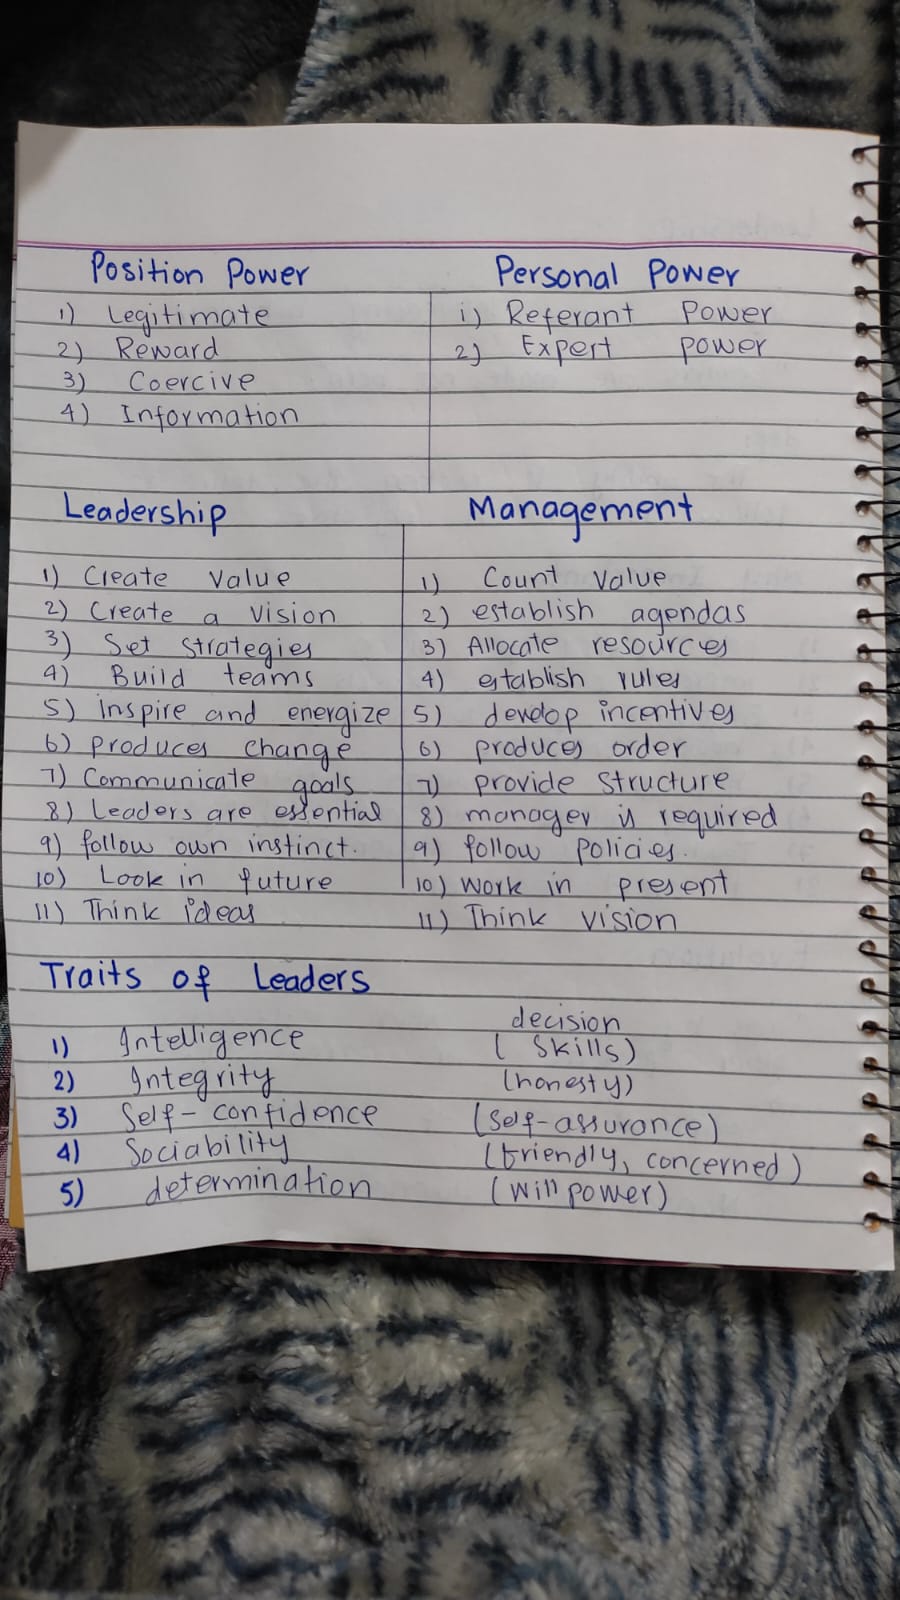 Position Power Personal Power
1) Legitimate i) Referant Power
2) Reward 2) Expert power
3) Coercive
4) Information
Leadership Management
1) Create value 1) Count value
2) Create a vision 2) establish agendas
3) Set strategies 3) Allocate resources
4) Build teams 4) establish rules
5) inspire and energize 5) develop incentives
6) produces change 6) produces order
7) Communicate goals 7) provide structure
8) Leaders are essential 8) manager is required
9) follow own instinct. 9) follow policies.
10) Look in future 10) work in present
11) Think ideas 11) Think vision
Traits of Leaders
decision
1) Intelligence ( Skills)
2) Integrity (honesty)
3) Self-confidence (self-assurance)
4) Sociability (friendly, concerned)
5) determination (will power)